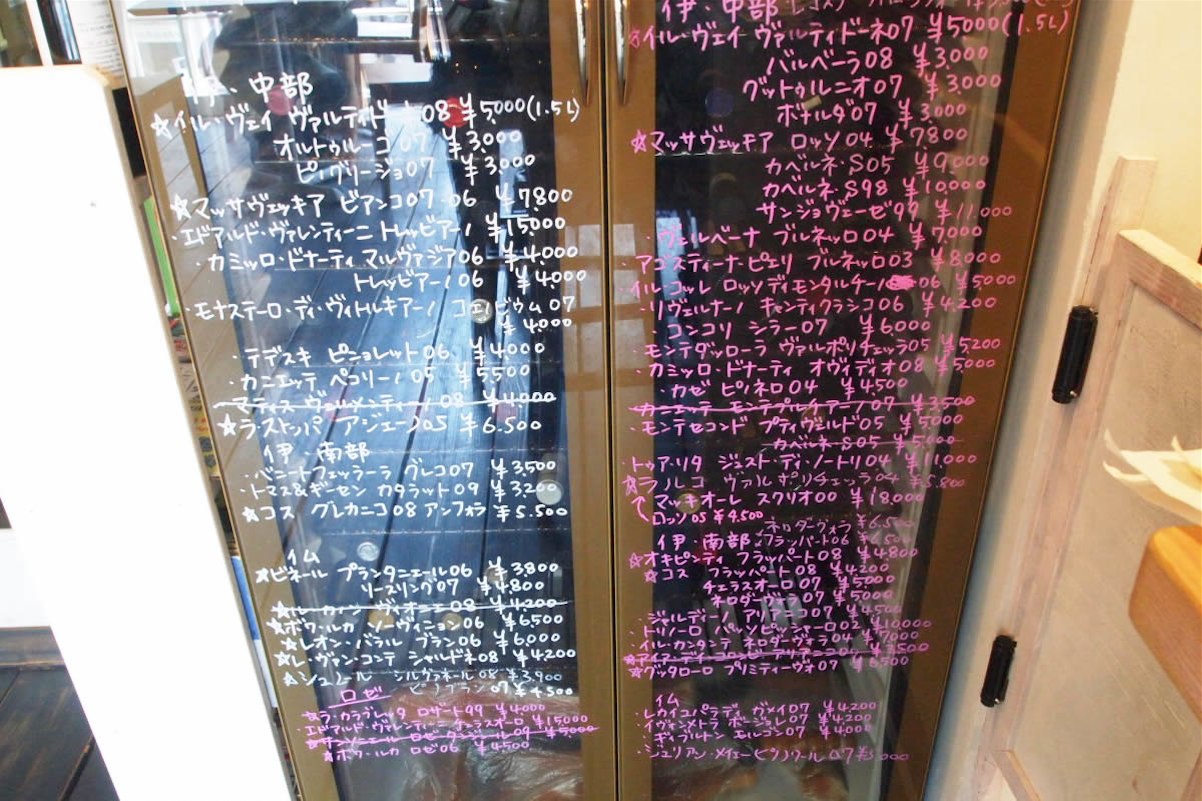 伊・中部
☆イル・ヴェイ ヴァルティドーネ 08 ¥5,000(1.5L)
オルトゥルーゴ 07 ¥3,000
ピ・グリージョ07 ¥3,000
☆マッサヴェッキア ビアンコ07・06 ¥7,800
・エドアルド・ヴァレンティーニ トレッビアーノ ¥15,000
・カミッロ・ドナーティ マルヴァジア06 ¥4,000
トレッビアーノ 06 ¥4,000
・モナステーロ・ディ・ヴィトルキアーノ コエノビウム 07
¥4,000
・テデスキ ピニョレット06 ¥4,000
・カニエッテ ペコリーノ 05 ¥5500
・マティス ヴェルメンティーノ 08 ¥4,000
☆ラ・ストッパ アジェーノ05 ¥6.500
伊・南部
・ベニートフェッラーラ グレコ07 ¥3500
・トマス&ギーセン カタラット09 ¥3200
☆コス グレカニコ08 アンフォラ ¥5.500
仏
☆ビネール プランタニエール06 ¥3800
リースリング07 ¥4,800
ヴィオニエ 08 ¥4200
☆ボワ・ルカ ソーヴィニョン 06 ¥6500
☆レオン・バラル ブラン 06 ¥6,000
☆レ・ヴァン・コンテ シャルドネ08 ¥4,200
シルヴァネール 08 ¥3,900
ピノブラン 07 ¥4500
ロゼ
☆ラ・カラブレッタ ロザート99 ¥4000
・エドアルド・ヴァレンティーニ チェラスオーロ ¥15000
¥5000
☆ボワ・ルカ ロゼ06 ¥4500
伊・中部
☆イル・ヴェイ ヴァルティドーネ07 ¥5000(1.5L)
バルベーラ08 ¥3,000
グットゥルニオ07 ¥3,000
ボナルダ07 ¥3,000
☆マッサヴェッキア ロッソ 04 ¥7800
カベルネ・S05 ¥9,000
カベルネ・S98 ¥10,000
サンジョヴェーゼ99 ¥11,000
・ヴェルベーナ ブルネッロ04 ¥7,000
・アゴスティーナ・ピエリ ブルネッロ03 ¥8000
・イル・コッレ ロッソディモンタルチーノ 06 ¥5000
・リヴェルナーノ キャンティクラシコ06 ¥4200
・コンコリ シラー07 ¥6000
・モンテダッローラ ヴァルポリチェッラ05 ¥5,200
・カミッロ・ドナーティ オヴィディオ08 ¥5,000
カゼ ピノネロ04 ¥4500
・カニエッテ モンテプルチアーノ07 ¥3500
・モンテセコンド プティヴェルド05 ¥5000
カベルネ・S05 ¥5000
・トゥア・リタ ジュスト・ディ・ノートリ04 ¥11,000
☆ラルコ ヴァルポリチェッラ04 ¥5.800
マッキオーレ スクリオ00 ¥18,000
ロッソ05 ¥4,500
ネロダーヴォラ ¥6,500
伊・南部
フラッパート06
☆オキピンティ フラッパート08 ¥4800
☆コス フラッパート08 ¥4200
チェラスオーロ 07 ¥5000
ネロダヴォラ 07 ¥5000
・ジャルディーノ アリアニコ07 ¥4500
・トリノーロ パレッソピッシャーロ02 ¥10000
・イル・カンタンテ ネロダーヴォラ04 ¥7000
アリアニコ04 ¥3500
☆グッタローロ プリミティーヴォ07 ¥6500
仏
・レカイユパラディ ガメイ07 ¥4200
・イヴォンメトラ ボージョレ07 ¥4200
・ギィブルトン モルゴン07 ¥4000
・ジュリアン・メイエー ピノノワール 07